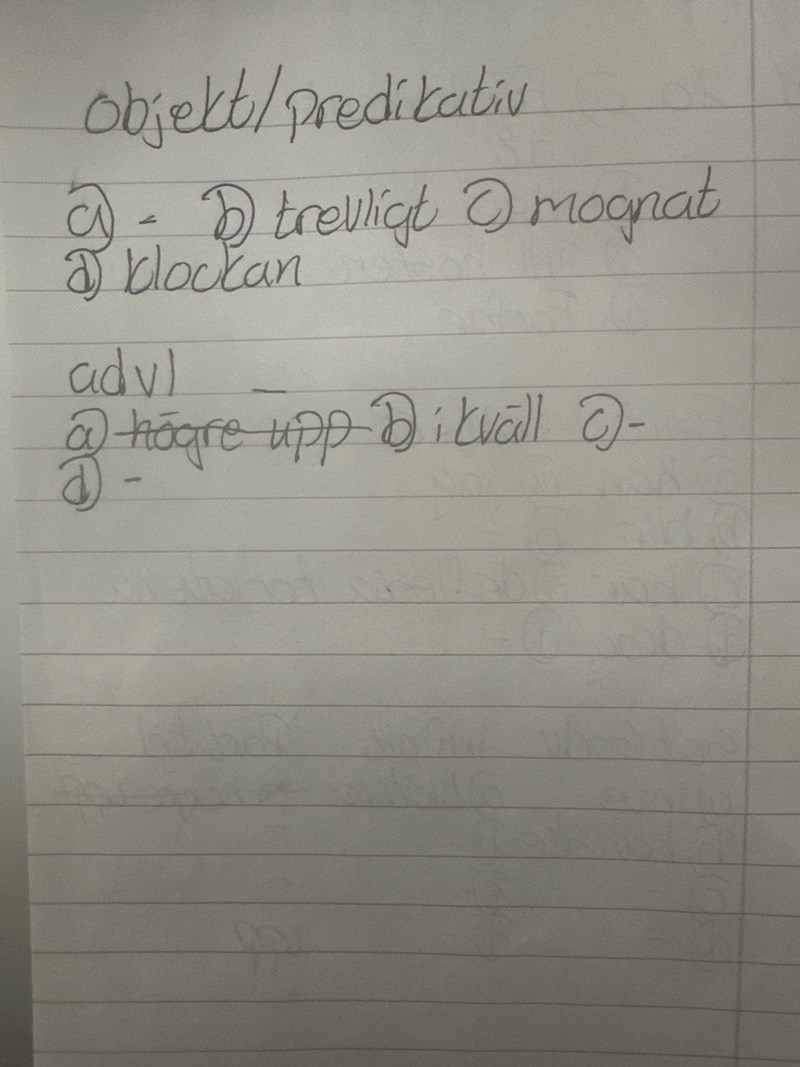 objekt/predikativ
a) - b) trevligt c) mognat
d) klockan
advl –
a) högre upp b) ikväll c) -
d) -